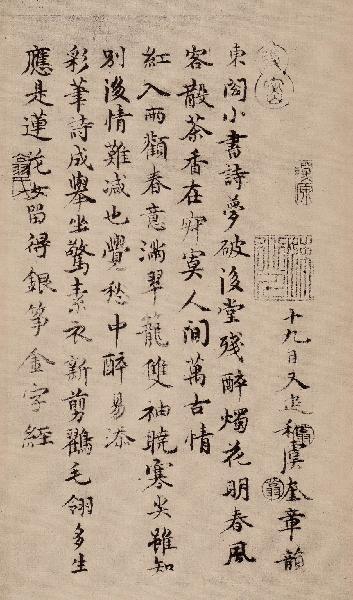 十九日又追和虞奎章韻
東閣小書詩夢破後堂殘醉燭花明春風
客散茶香在寂寞人間萬古情
紅入兩顴春意滿翠籠雙袖曉寒尖雖知
別後情難減也覺愁中醉易添
彩筆詩成舉坐驚素衣新剪鶴毛翎多生
應是蓮花女留得銀箏金字經